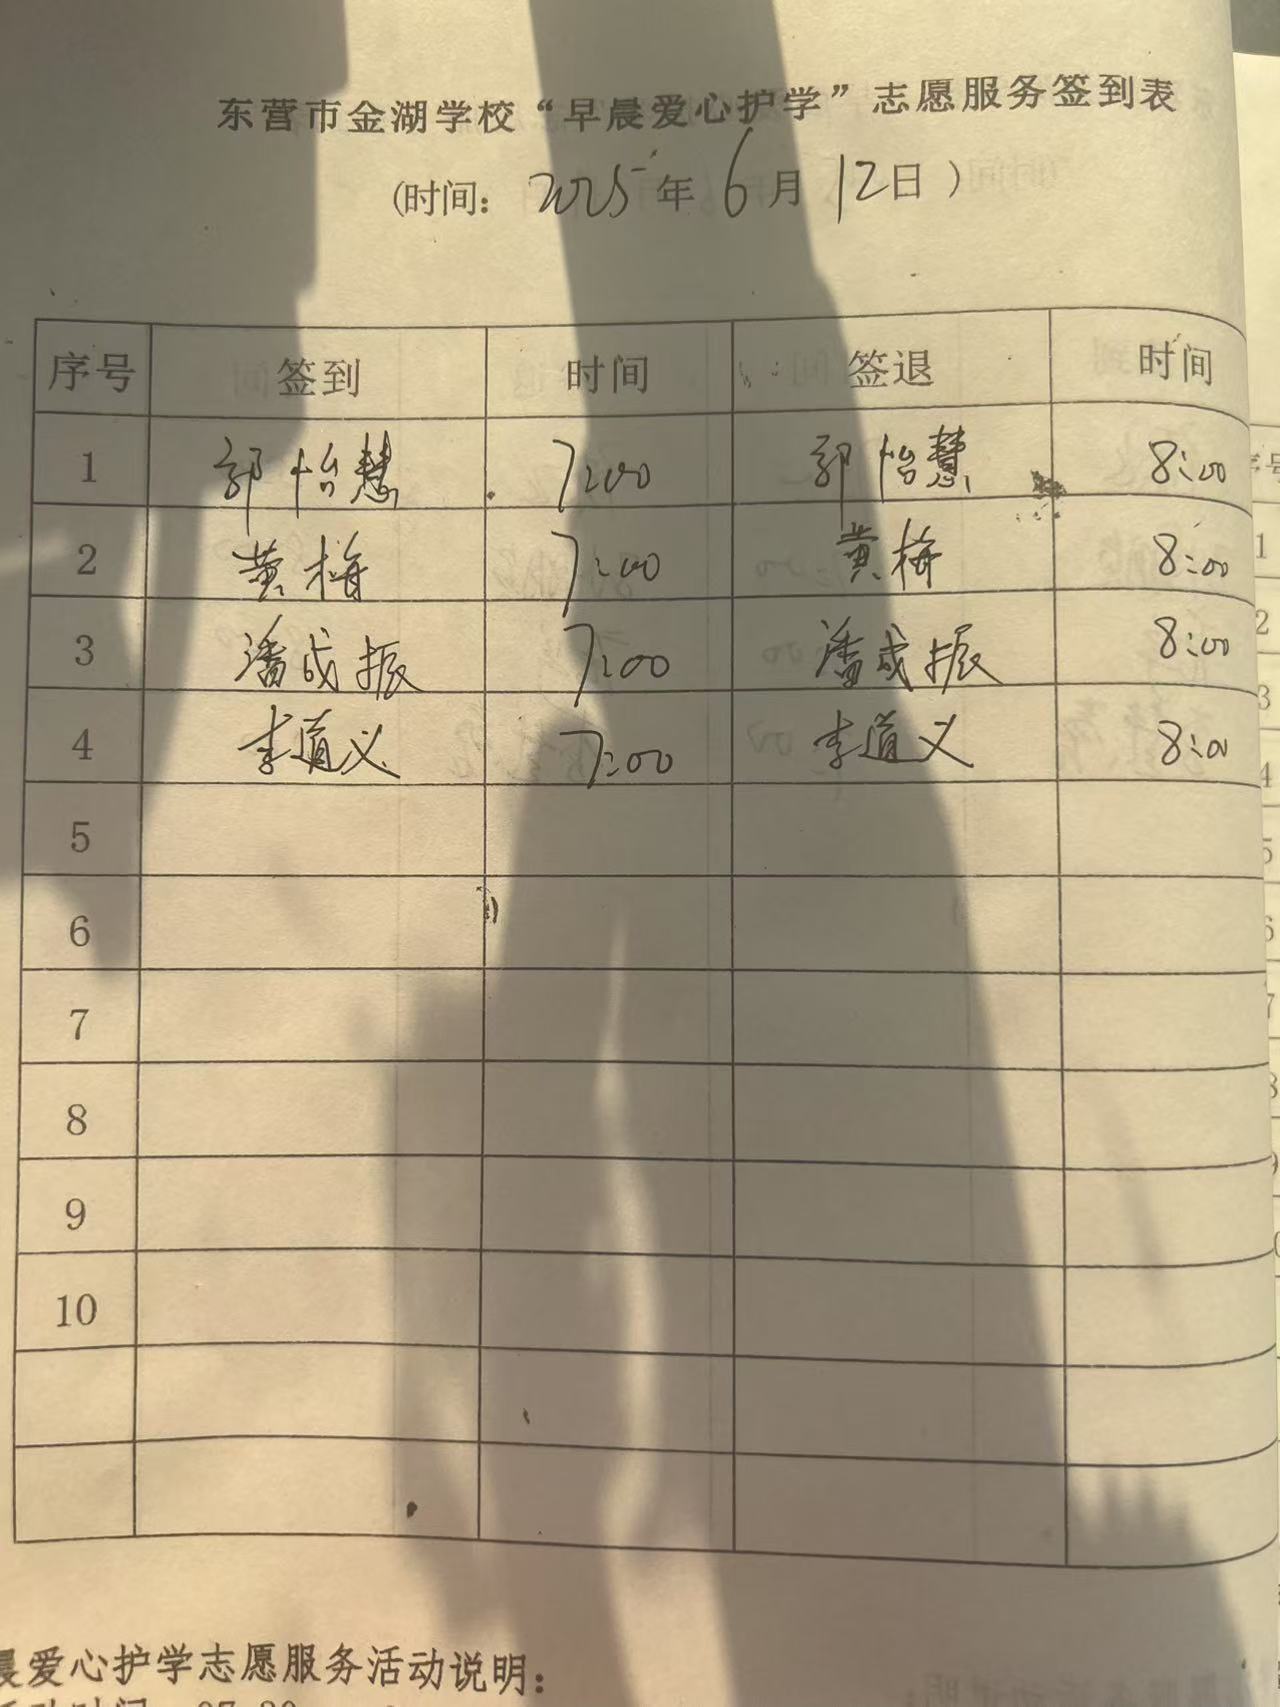 东营市金湖学校“早晨爱心护学”志愿服务签到表
(时间: 2025年6月12日)
序号 签到 时间 签退 时间
1 郭怡慧 7:00 郭怡慧 8:00
2 黄梅 7:00 黄梅 8:00
3 潘成振 7:00 潘成振 8:00
4 李道义 7:00 李道义 8:00
5
6
7
8
9
10
晨爱心护学志愿服务活动说明: